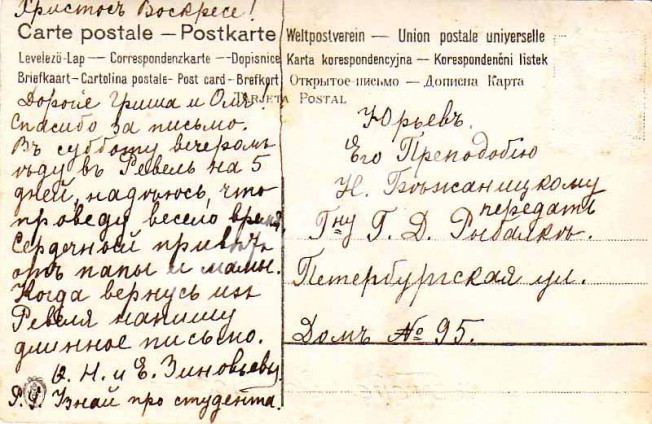 Христосъ Воскресе!
Carte postale — Postkarte
Weltpostverein — Union postale universelle
Levelező-Lap — Correspondenzkarte — Dopisnice
Karta korespondencyjna — Korespondenční listek
Briefkaart - Cartolina postale - Post card - Brefkort
Открытое-письмо — Дописна Карта
Tarjeta Postal
Дорогіе Гриша и Оля!
Спасибо за письмо.
Въ субботу вечеромъ
ѣду въ Ревель на 5
дней, надѣюсь, что
проведу весело время.
Сердечный привѣтъ
отъ папы и мамы.
Когда вернусь изъ
Ревеля напишу
длинное письмо.
Н. и Е. Зиновьеву.
P. S. Узнай про студента.
Юрьевъ.
Его Преподобію
Н. Бѣжаницкому
передать
Гну Г. Д. Рыбалкѣ.
Петербургская ул.
Домъ № 95.